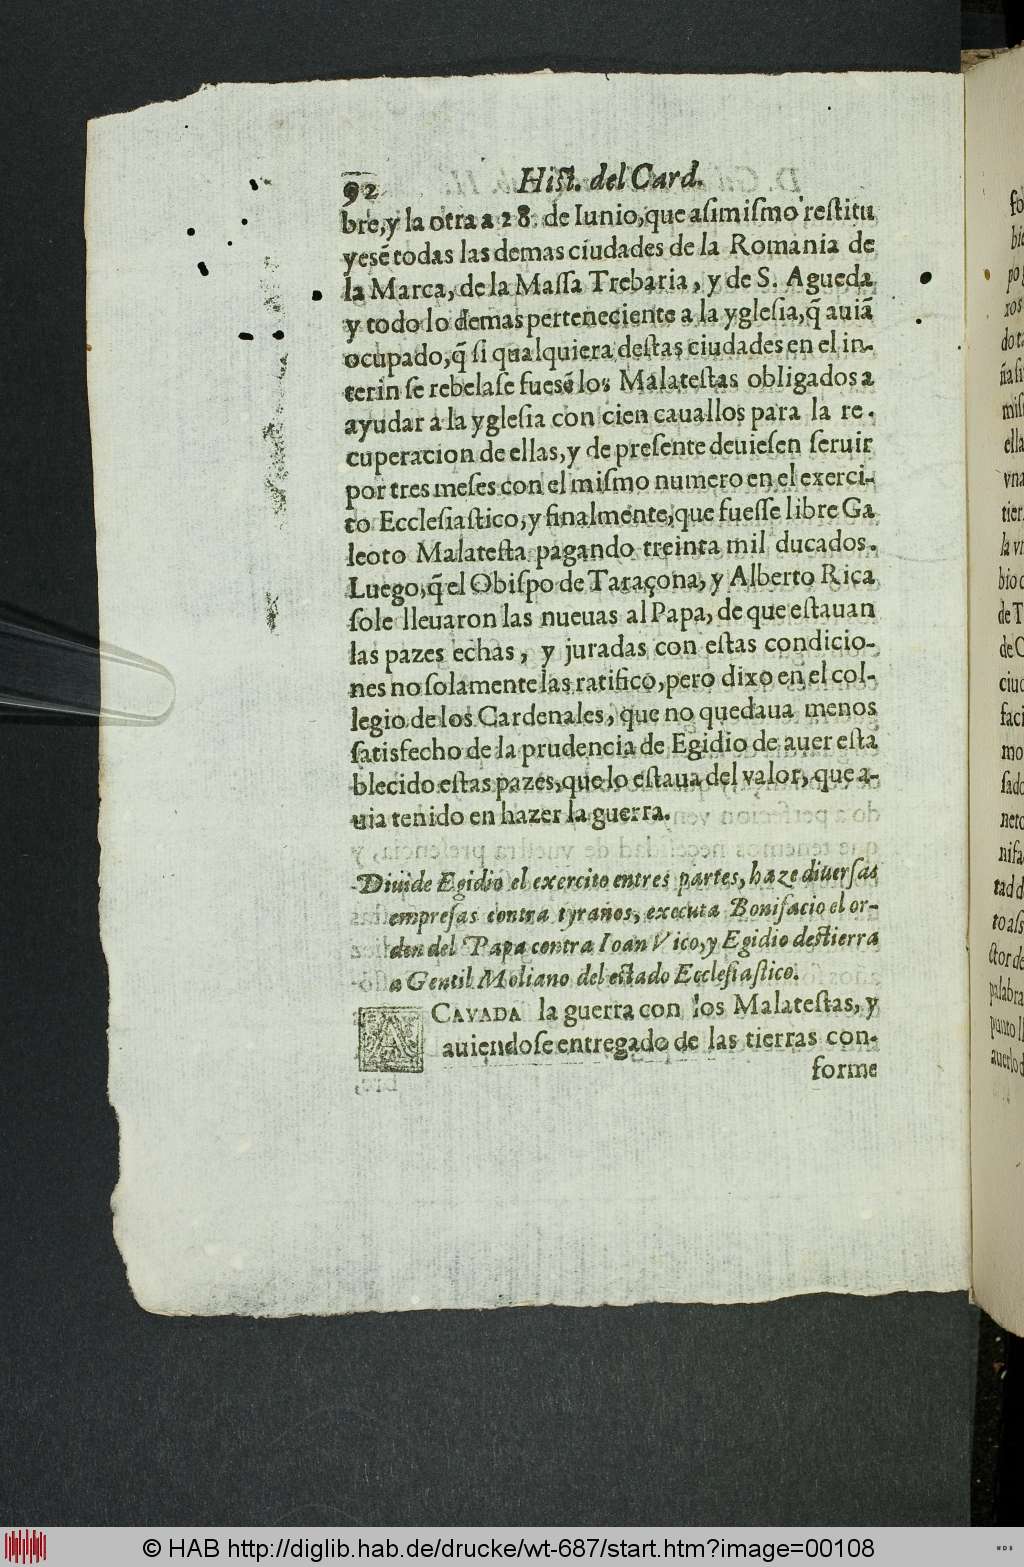 92
Hist. del Card.
bre, y la otra a 28. de Iunio, que asimismo restitu
yesē todas las demas ciudades de la Romania de
la Marca, de la Massa Trebaria, y de S. Agueda
y todo lo demas perteneciente a la yglesia, q̄ auiā
ocupado, q̄ si qualquiera destas ciudades en el in-
terin se rebelase fuesē los Malatestas obligados a
ayudar a la yglesia con cien cauallos para la re-
cuperacion de ellas, y de presente deuiesen seruir
por tres meses con el mismo numero en el exerci-
to Ecclesiastico, y finalmente, que fuesse libre Ga
leoto Malatesta pagando treinta mil ducados.
Luego, q̄ el Obispo de Taraçona, y Alberto Rica
sole lleuaron las nueuas al Papa, de que estauan
las pazes echas, y juradas con estas condicio-
nes no solamente las ratifico, pero dixo en el col-
legio de los Cardenales, que no quedaua menos
satisfecho de la prudencia de Egidio de auer esta
blecido estas pazes, que lo estaua del valor, que a-
uia tenido en hazer la guerra.
Diuide Egidio el exercito entres partes, haze diuersas
empresas contra tyraños, executa Bonifacio el or-
den del Papa contra Ioan Vico, y Egidio destierra
a Gentil Moliano del estado Ecclesiastico.
ACAVADA la guerra con los Malatestas, y
auiendose entregado de las tierras con-
forme
© HAB http://diglib.hab.de/drucke/wt-687/start.htm?image=00108